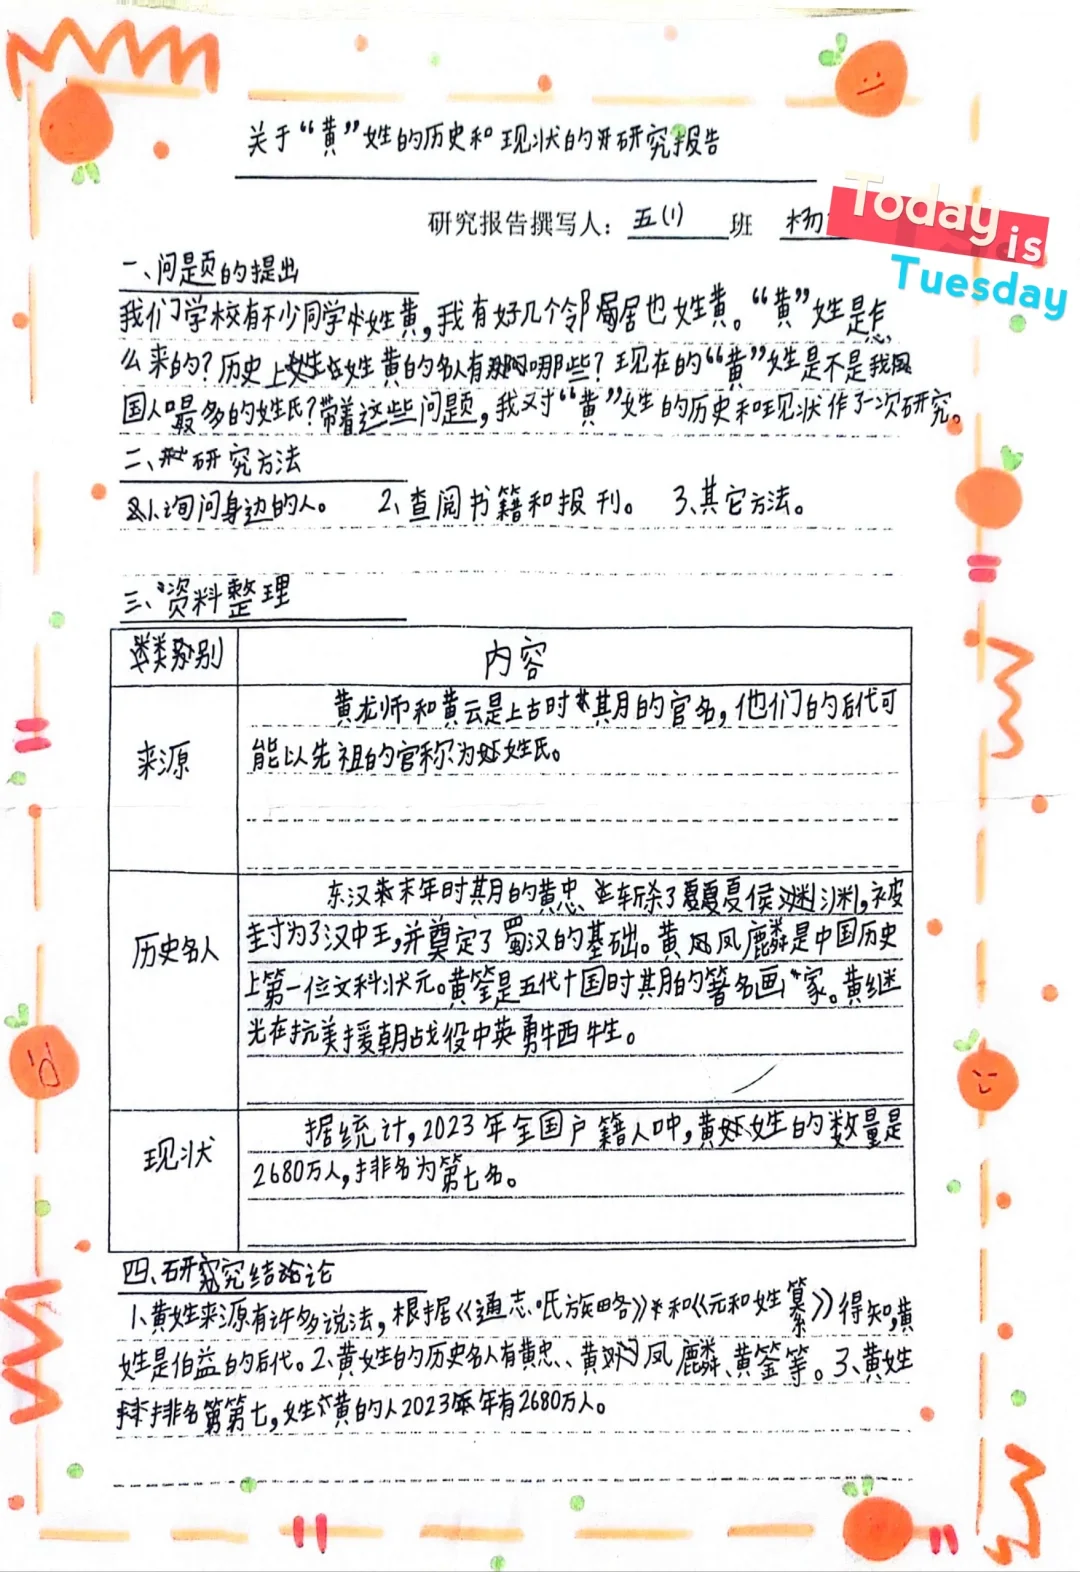 关于“黄”姓的历史和现状的研究报告
研究报告撰写人：五(1)班 杨
Today is
Tuesday
一、问题的提出
我们学校有不少同学姓黄，我有好几个邻居也姓黄。“黄”姓是怎
么来的？历史上姓黄的名人有哪些？现在的“黄”姓是不是我
国人口最多的姓氏？带着这些问题，我对“黄”姓的历史和现状作了一次研究。
二、研究方法
1、询问身边的人。 2、查阅书籍和报刊。 3、其它方法。
三、资料整理
类别 内容
来源
黄龙师和黄云是上古时期的官名，他们的后代可
能以先祖的官称为姓氏。
历史名人
东汉末年时期的黄忠斩杀了夏侯渊，被
封为了汉中王，并奠定了蜀汉的基础。黄凤麟是中国历史
上第一位文科状元。黄筌是五代十国时期的著名画家。黄继
光在抗美援朝战役中英勇牺牲。
现状
据统计，2023年全国户籍人口中，黄姓的数量是
2680万人，排名为第七名。
四、研究结论
1、黄姓来源有许多说法，根据《通志·氏族略》和《元和姓纂》得知，黄
姓是伯益的后代。2、黄姓的历史名人有黄忠、黄凤麟、黄筌等。3、黄姓
排名第七，姓黄的人2023年有2680万人。